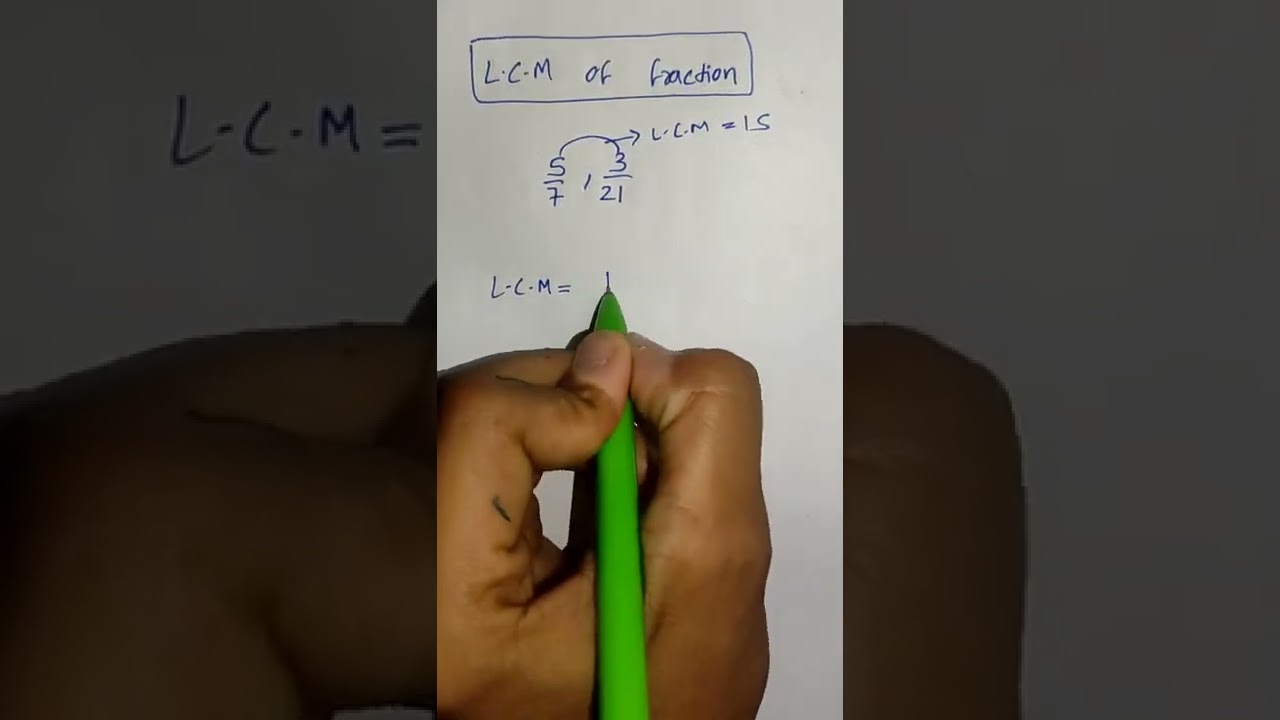 L.C.M of fraction
L.C.M = 15
5/7 , 3/21
L.C.M = 1
L.C.M =